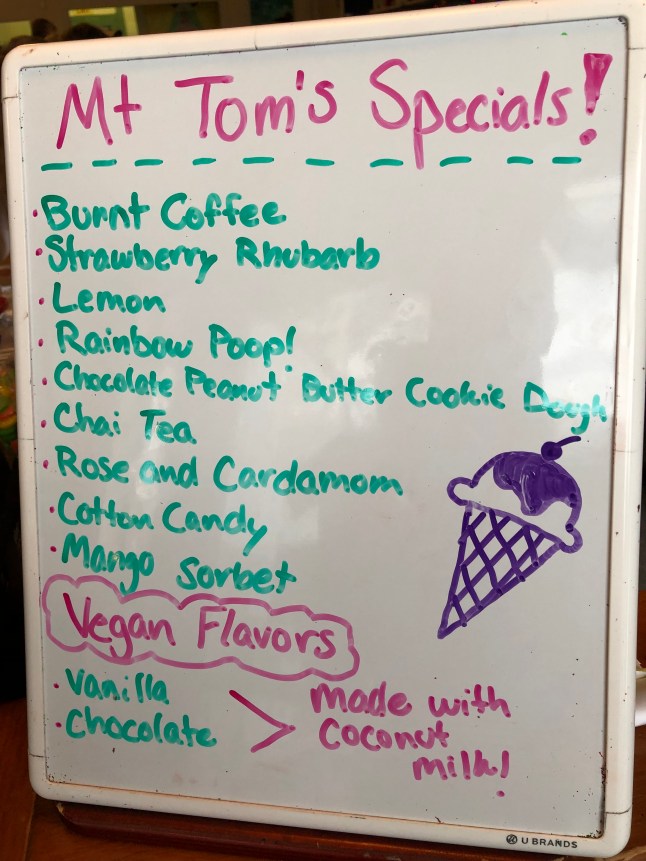 Mt Tom's Specials!
• Burnt Coffee
• Strawberry Rhubarb
• Lemon
• Rainbow Poop!
• Chocolate Peanut Butter Cookie Dough
• Chai Tea
• Rose and Cardamom
• Cotton Candy
• Mango Sorbet
Vegan Flavors
• Vanilla
• Chocolate
> made with
coconut
milk!
U BRANDS